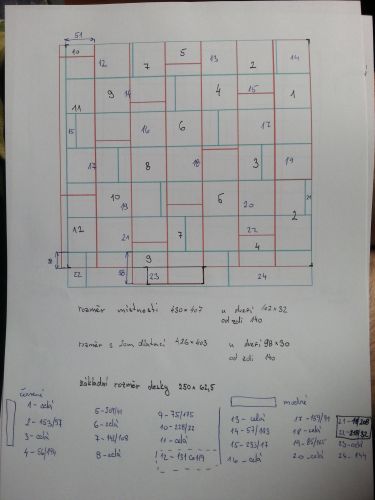 51
10
12
7
5
13
2
14
11
9
14
4
15
1
15
16
6
17
17
8
18
3
19
10
19
6
20
2
21
12
21
7
22
4
9
22
23
24
rozměr místnosti 430×407 u dveří 102×32
od zdi 140
rozměr s 1cm dilatací 426×403 u dveří 98×30
od zdi 140
základní rozměr desky 250×62,5
červené
modré
1 - celá
2 - 153/97
3 - celá
4 - 56/194
6 - celá
8 - celá
9 - 75/175
10 - 228/22
11 - celá
13 - celá
15 - 233/17
16 - celá
18 - celá
20 - celá
23 - celá
24 - 144